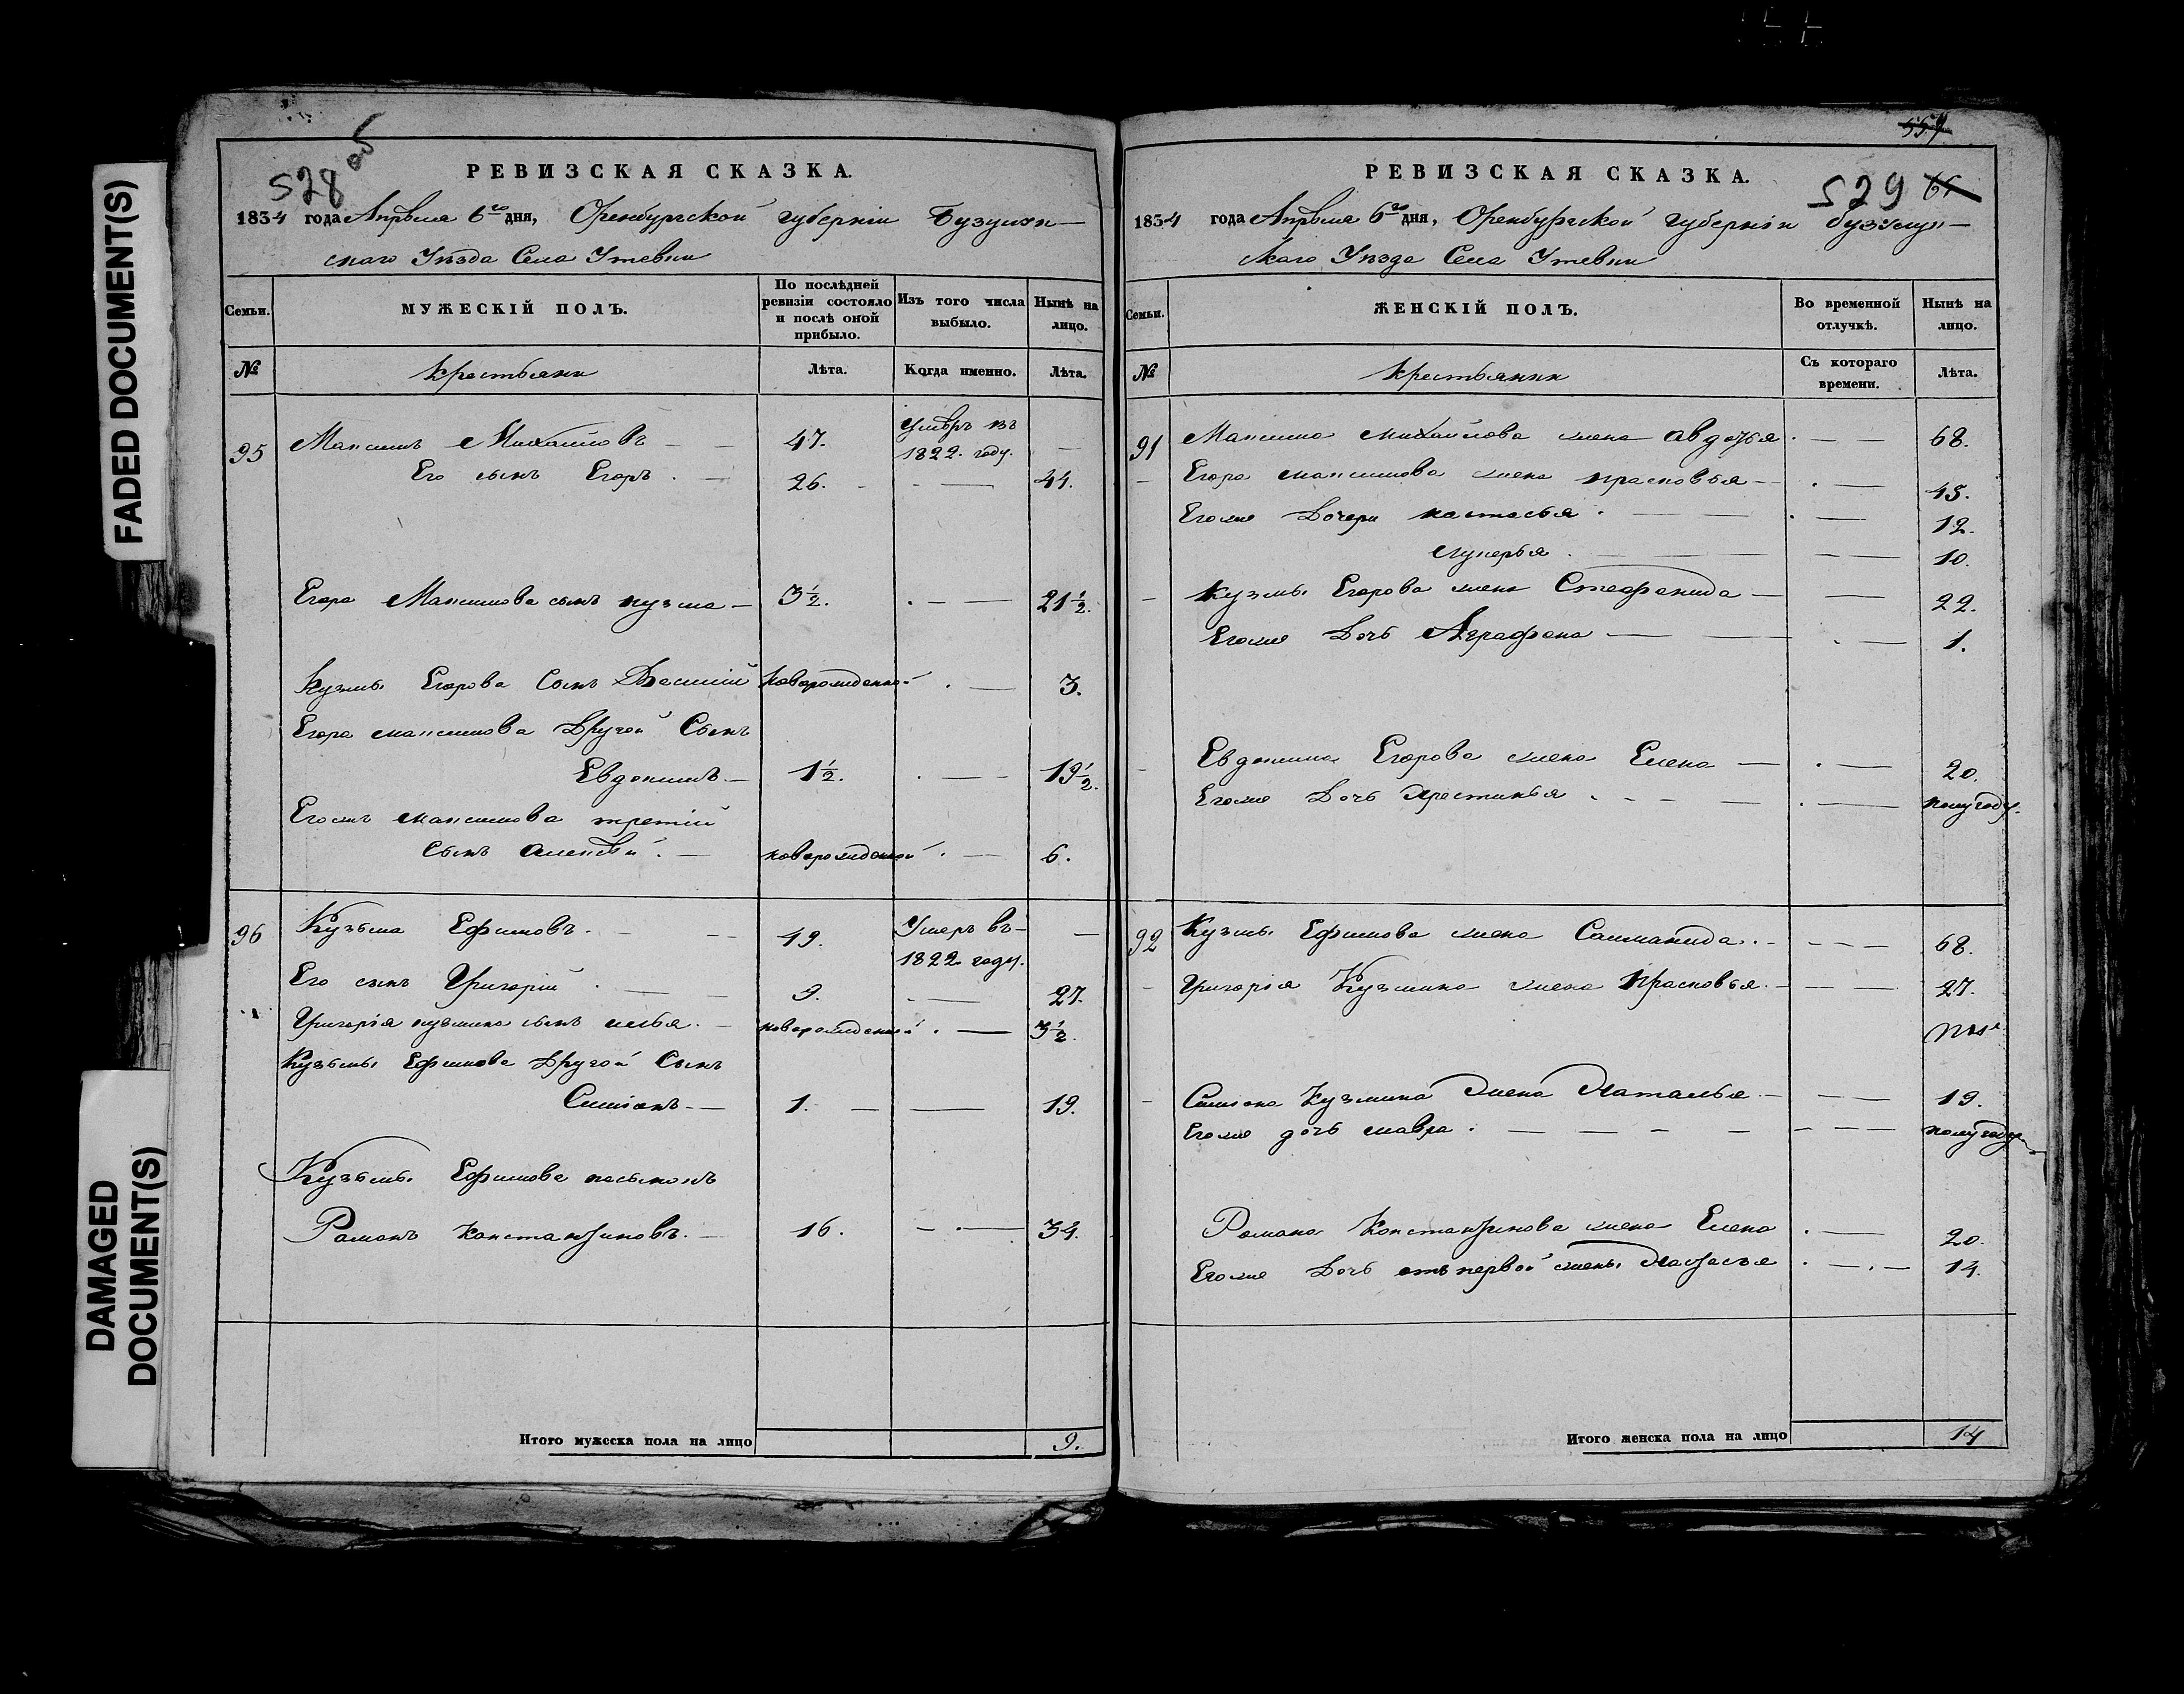 FADED DOCUMENT(S)
DAMAGED
DOCUMENT(S)
528 об
РЕВИЗСКАЯ СКАЗКА.
1834 года Апрѣля 6го дня, Оренбургской губерніи Бузулун-
скаго Уѣзда Села Утевки
Семьи. МУЖЕСКІЙ ПОЛЪ. По послѣдней ревизіи состояло и послѣ оной прибыло. Изъ того числа выбыло. Нынѣ на лицо.
№ Крестьяни Лѣта. Когда именно. Лѣта.
95 Максимъ Михайловъ — — 47. Умѣръ въ 1822. году. —
Его сынъ Егоръ . — 26. - - — 44.
Егора Максимова сынъ кузма — 3½. . — — 21½.
Кузмы Егорова Сынъ Василій новорожденной . — 3.
Егора максимова Другой Сынъ
Евдокимъ. — 1½. . — - 19½.
Егожъ максимова третій
Сынъ Алексѣй . — новорожденной . — 6.
96 Кузьма Ефимовъ. - — 49. Умеръ въ - 1822 году. —
Его сынъ Григорій . — — 9. . — 27.
Григорія кузмина сынъ илья. — новорожденной . — 3½.
Кузьмы Ефимова Другой Сынъ
Симіонъ. — 1. — — 19.
Кузьмы Ефимова пасынокъ
Романъ Константиновъ. — 16. — . — 34.
Итого мужеска пола на лицо 9.
559
529
РЕВИЗСКАЯ СКАЗКА.
1834 года Апрѣля 6го дня, Оренбургской Губерніи бузулун-
скаго Уѣзда Села Утевки
Семьи. ЖЕНСКІЙ ПОЛЪ. Во временной отлучкѣ. Нынѣ на лицо.
№ Крестьянки Съ котораго времени. Лѣта.
91 Максима михайлова жена авдотья . — — 68.
— Егора максимова жена прасковья — - . — 45.
Егоже Дочери настасья . — — . — 12.
лукерья . — — — — — 10.
— Кузмы Егорова жена Стефанида — — 22.
Егоже Дочь Аграфена — — . — 1.
- Евдокима Егорова жена Елена — . — 20.
Егоже Дочь Хрестинья . - - — — . — полугоду.
92 Кузмы Ефимова жена Саломанида . - — — — 68.
- Григорія Кузмина жена прасковья. — — — — 27.
- Симіона Кузмина жена Наталья — — — — 19.
Егоже дочь мавра . — — — — — — — полугоду
Романа Константинова жена Елена . — 20.
Егоже Дочь отъ первой жены Настасья . — . — 14.
Итого женска пола на лицо 14